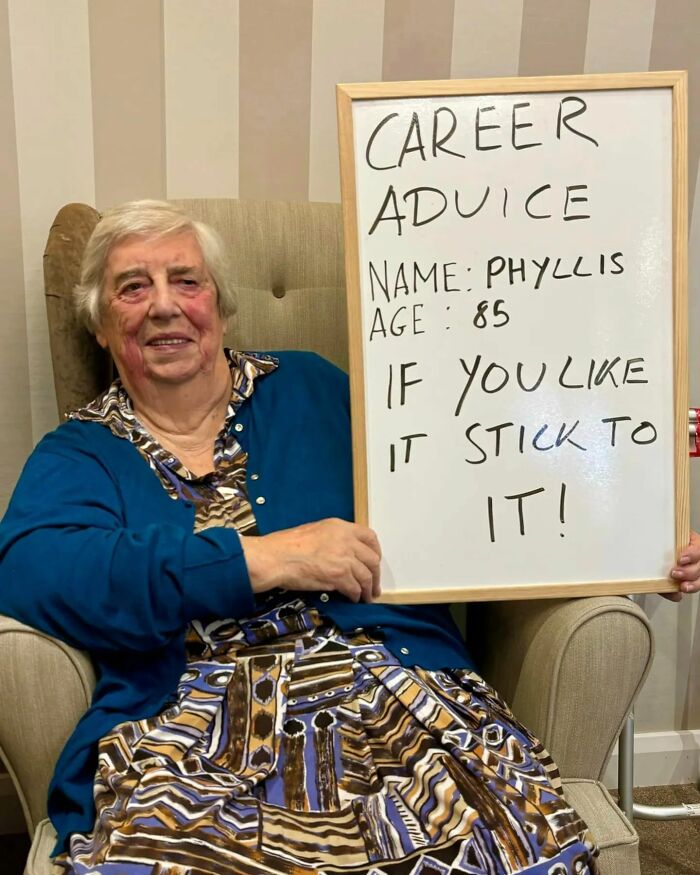 CAREER
ADVICE
NAME: PHYLLIS
AGE : 85
IF YOU LIKE
IT STICK TO
IT!